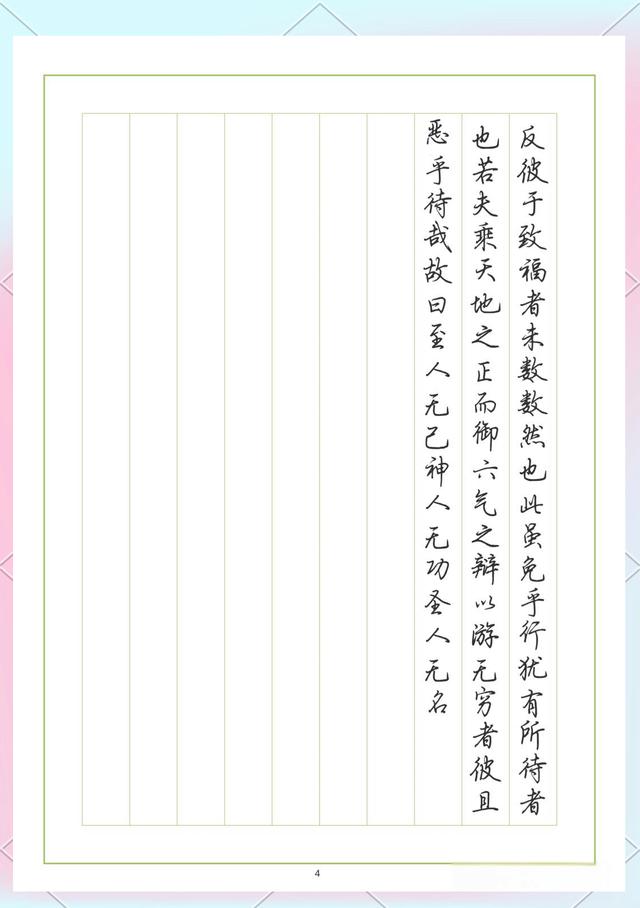 反彼于致福者未数数然也此虽免乎行犹有所待者
也若夫乘天地之正而御六气之辩以游无穷者彼且
恶乎待哉故曰至人无己神人无功圣人无名
4